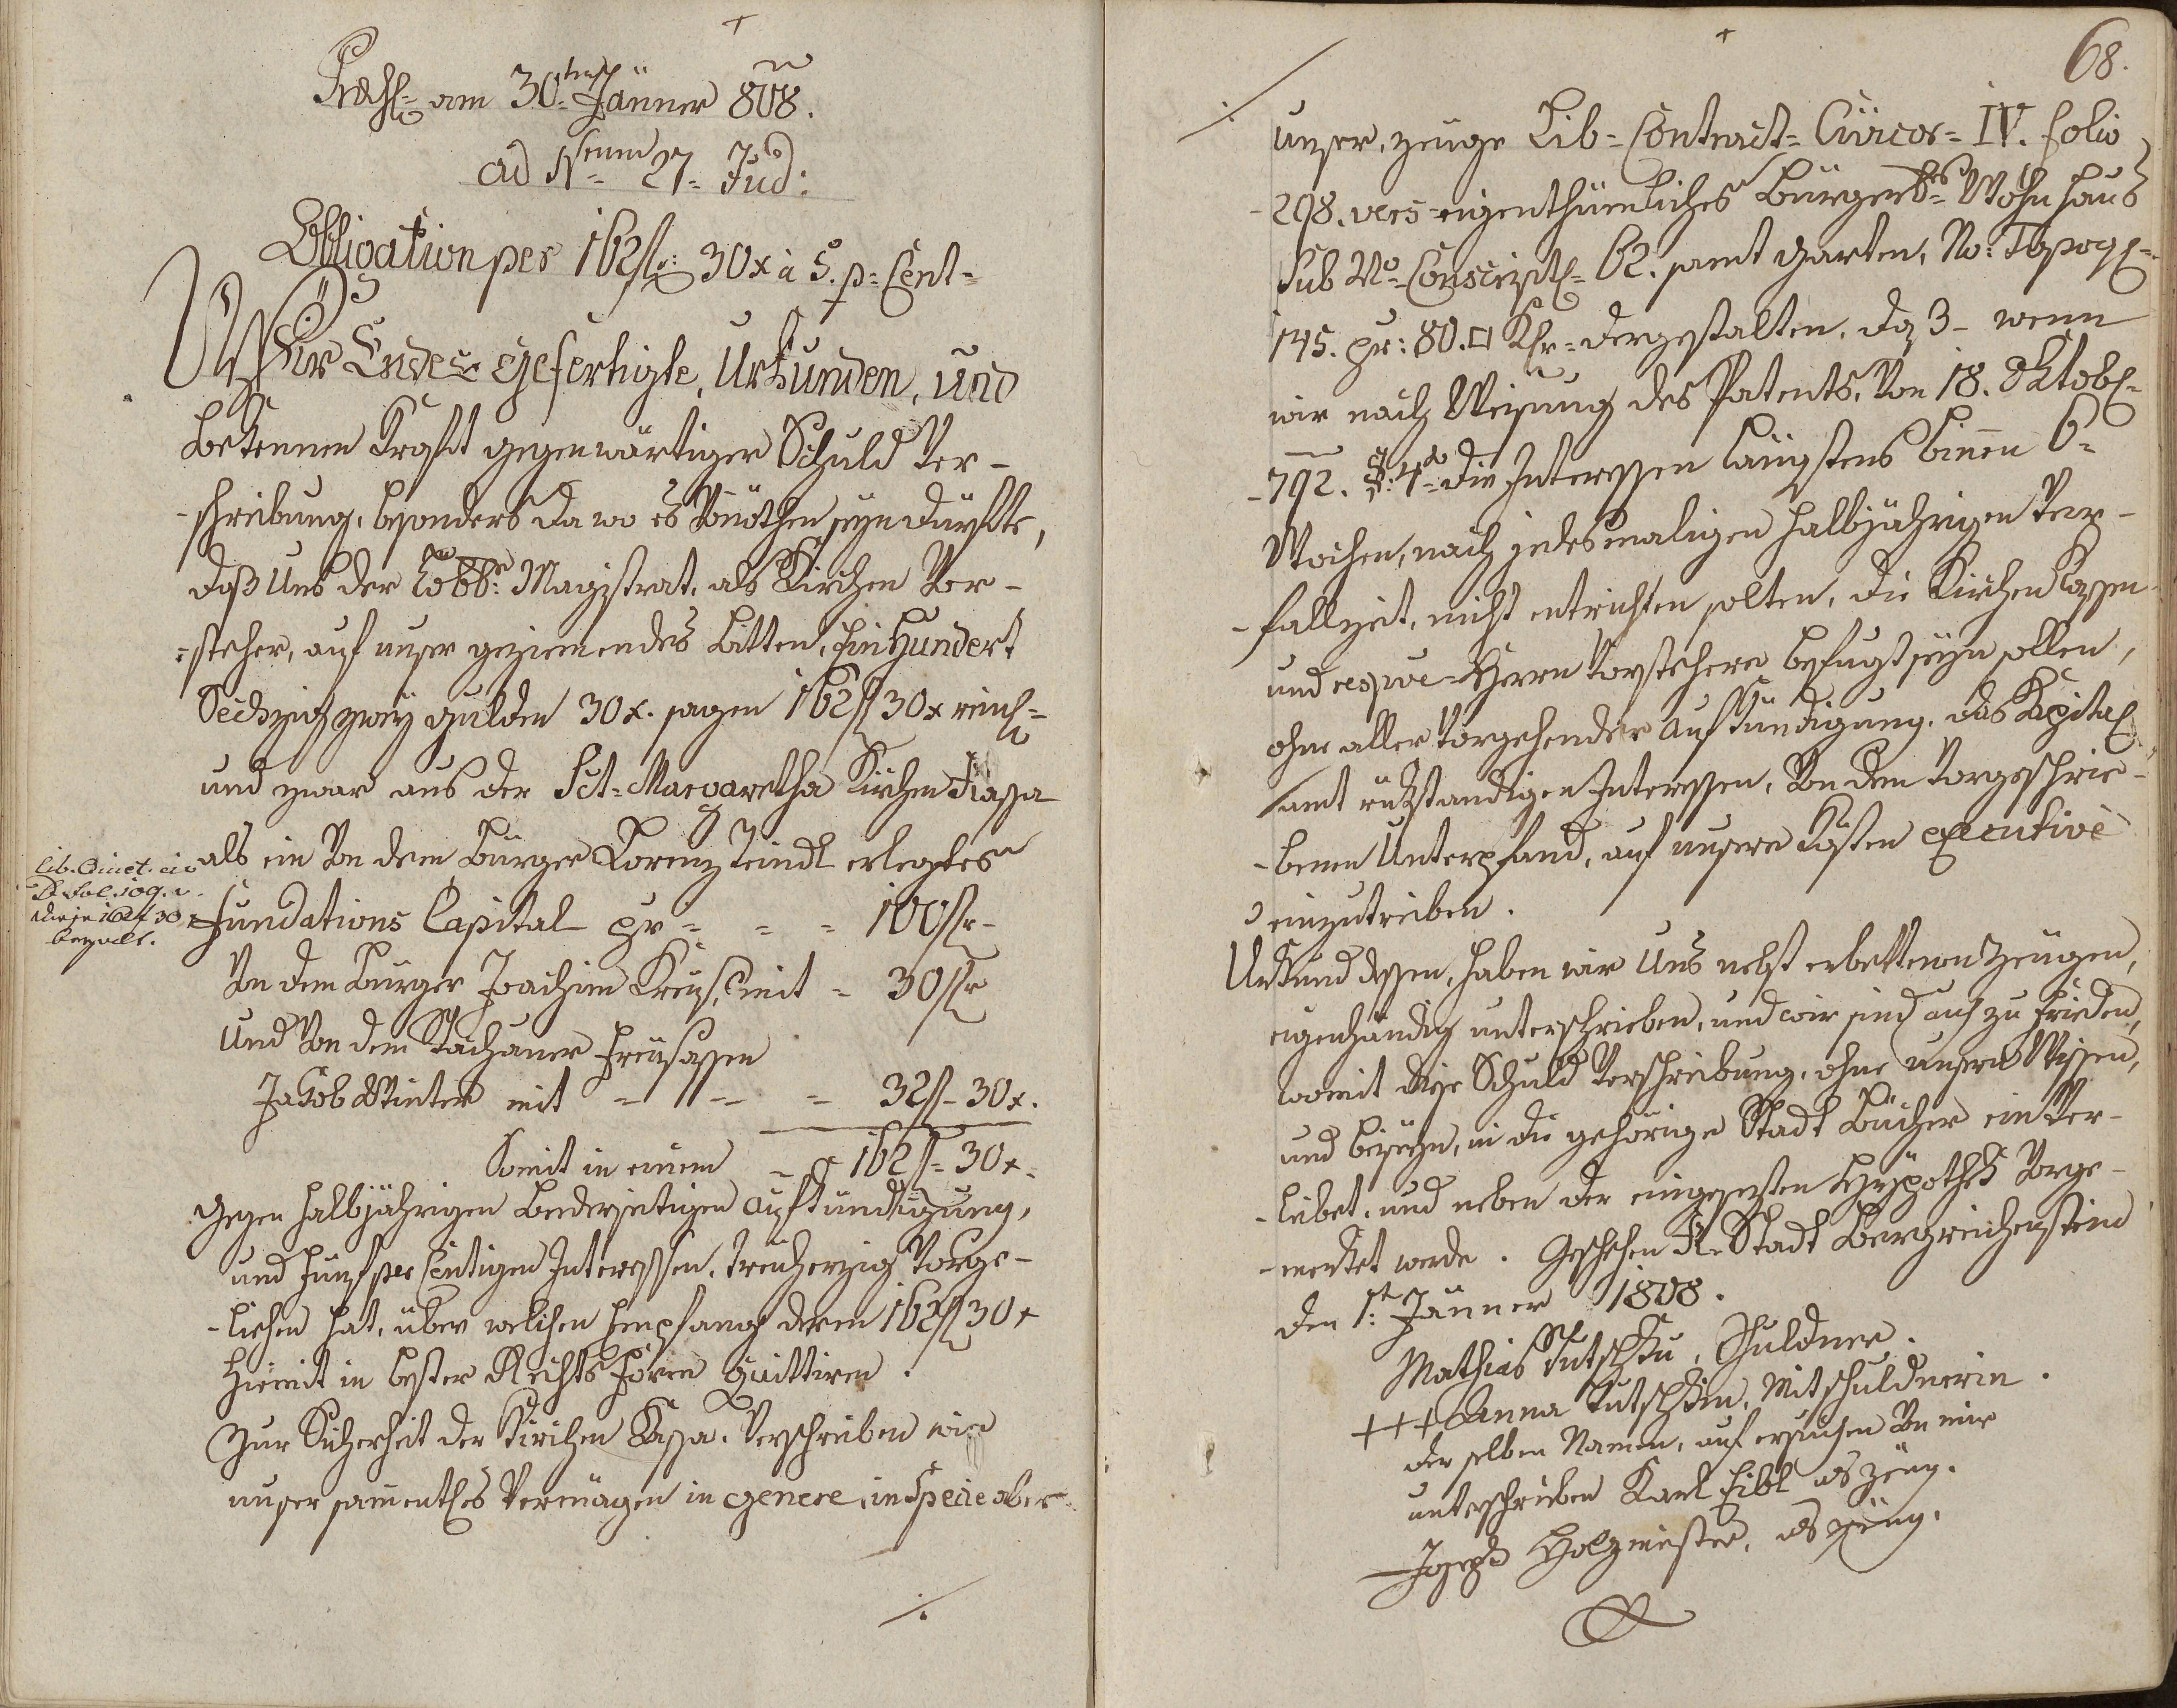 Præs: am 30ten Jänner 808.
ad Nrum 27 Jud:
Obligation per 162 fl: 30 x à 5. p: Cent
Wir Endes gefertigte, Urkunden, und
bekennen Kraft gegenwärtiger Schuld Ver-
-schreibung, besonders da wo es Vonöthen seyn dürfte,
daß Uns der Löbl: Magistrat, als Kirchen Vor-
-steher, auf unser geziemendes Bitten, Ein Hundert
Sechzig zwey gulden 30 x. sagen 162 fl 30 x reinl:
und zwar aus der Sct: Margaretha Kirchen Kassa
als ein Von dem Bürger Lorenz Teindl erlegtes
Fundations Capital pr = = = 100 fr-
Von dem Bürger Joachim Kreuß, mit = 30 fr
Und Von dem Stachauer Freysassen
Jakob Winter mit - - = 32 f- 30 x.
Somit in einem - 162 f- 30 x.
gegen halbjährigen Beederseitigen Aufkündigung,
und Fünf per Centigen Interessen, treuherzig Vorge-
-liehen hat, über welchen Empfang deren 162 fl 30 x
hiemit in bester Rechts Form quittiren.
Zur Sicherheit der Kirchen Kassa, Verschreiben wir
unser sammentl: Vermögen in genere, in Specie aber
./.
Lib.
fol. 109. v.
diese 162 f 30 x
bezalt.
68.
./.
unser, zeuge Lib: Contract: Civicor: IV. folio
298. vers eigenthümliches Bürgerl: Wohnhaus
Sub No Conscript: 62. samt Garten, No: Topogr:
145. pr: 80. □ Klr: dergestalten, daß wenn
wir nach Weisung des Patents, Von 18. Oktob:
-792. §: 4to die Interessen längstens binnen 6
Wochen, nach jedesmaligen halbjährigen Ver-
-fallzeit, nicht entrichten solten, die Kirchen Kassen
und respve Herrn Vorstehere befugt seyn sollen,
ohne aller Vorgehender Aufkündigung, das Kapital
samt rükständigen Interessen, Von dem Vorgeschrie-
-benen Unterpfand, auf unsere Kösten executive
einzutreiben.
Urkund dessen, haben wir Uns nebst erbettenen Zeugen,
eigenhändig unterschrieben, und wir sind auch zu frieden,
womit diese Schuld Verschreibung, ohne unsern Wissen,
und beyseyn, in die gehörige Stadt Bücher ein Ver-
-leibet, und neben der eingesezten Hypothek Vorge-
-merket werde. Geschehen K: Stadt Bergreichenstein
den 1t: Jänner 1808.
Mathias Tutschku, Schuldner.
+++ Anna Tutschkin, Mitschuldnerin.
der selben Namen, auf ersuchen Von mir
unterschrieben Karl Eibl als zeug.
Joseph Holzmeister, als zeug.